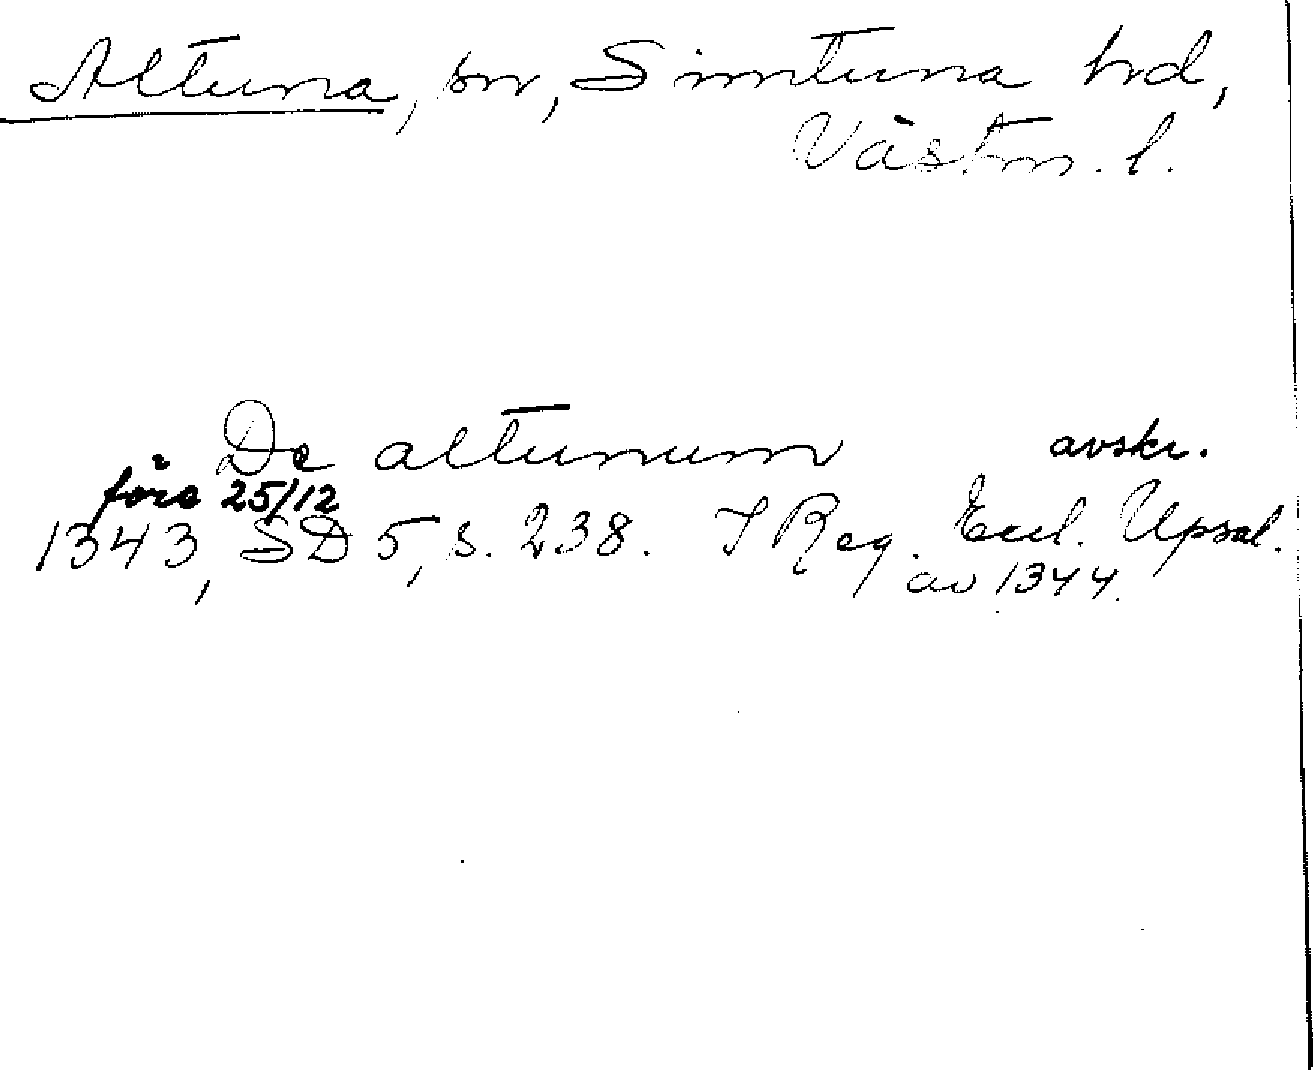 Altuna, sn, Simtuna hd,
Västm. l.
De altunum avskr.
före 25/12
1343, SD 5, s. 238. I Reg. Eccl. Upsal.
av 1344.